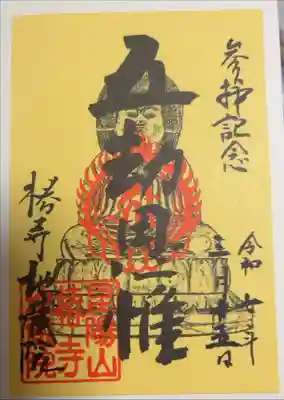 参拝記念
令和
三月
五日
五劫思惟
椿寺地蔵院
昆陽山
椿寺
地蔵院